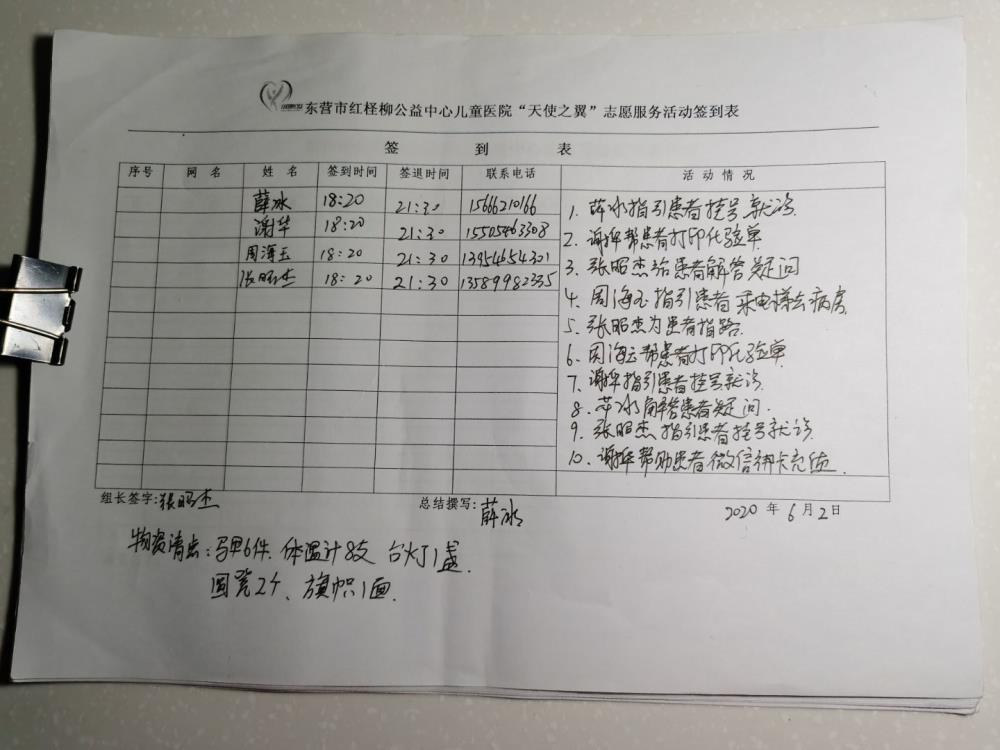 东营市红柽柳公益中心儿童医院“天使之翼”志愿服务活动签到表
签 到 表
序号 网 名 姓 名 签到时间 签退时间 联系电话 活 动 情 况
薛冰 18:20 21:30 15666210166
谢华 18:20 21:30 15505463308
周海玉 18:20 21:30 13954654301
张昭杰 18:20 21:30 13589982335
1. 薛冰指引患者挂号就诊.
2. 谢华帮患者打印化验单
3. 张昭杰给患者解答疑问
4. 周海玉指引患者采电梯去病房
5. 张昭杰为患者指路.
6. 周海玉帮患者打印化验单
7. 谢华指引患者挂号就诊.
8. 薛冰解答患者疑问.
9. 张昭杰指引患者挂号就诊.
10. 谢华帮助患者微信绑卡充值.
组长签字:张昭杰 总结撰写:薛冰 2020 年 6 月 2 日
物资清点:马甲6件. 体温计8支 台灯1盏.
圆凳2个、旗帜1面.